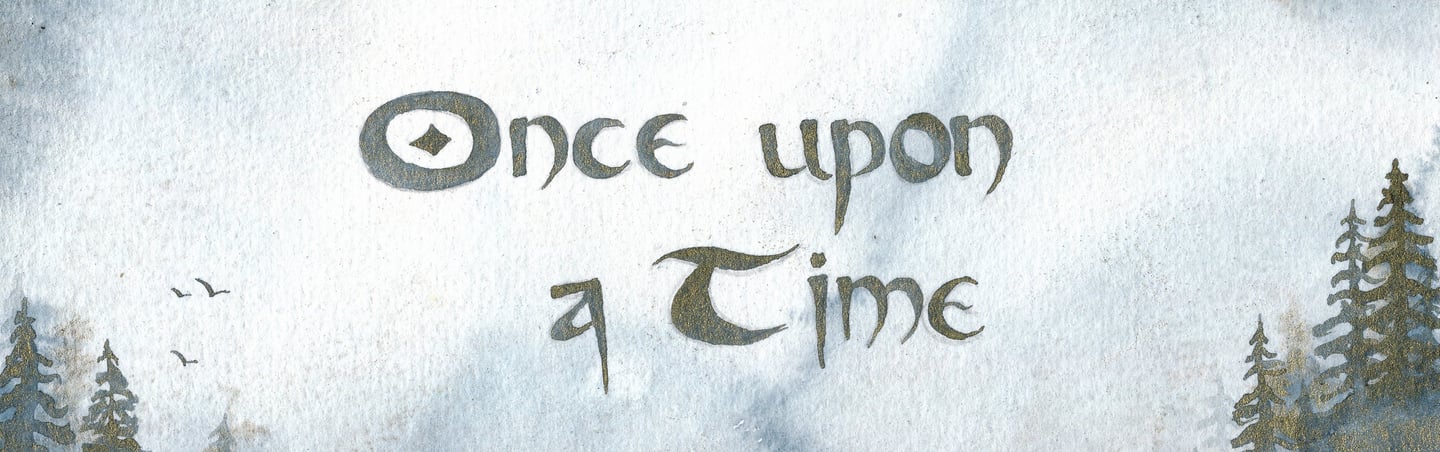 Once upon
a Time